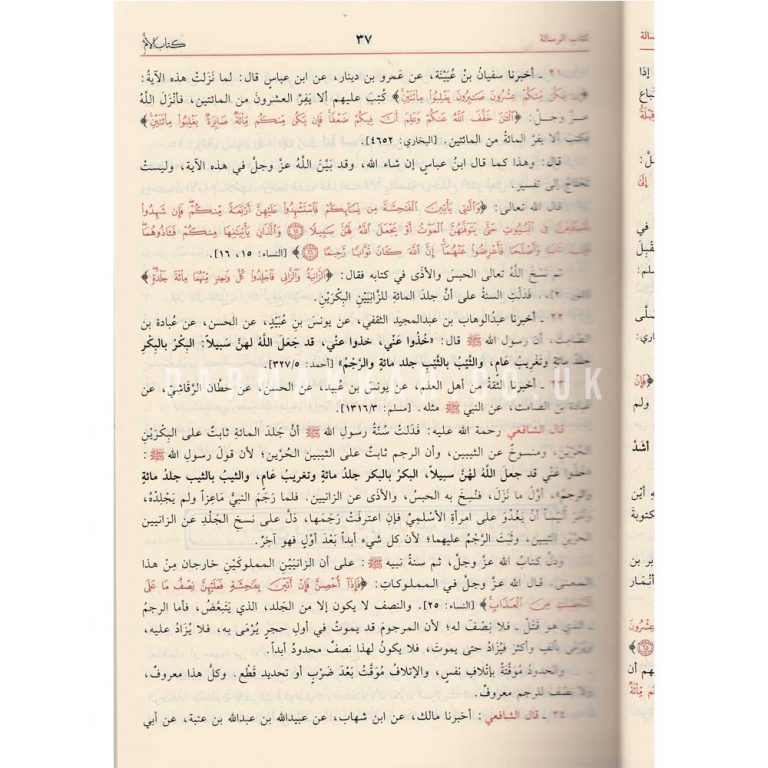 كتاب الرسالة ٣٧ كتاب الأم
٢١ ـ أخبرنا سفيانُ بنُ عُيَيْنَة، عن عَمرو بن دينار، عن ابن عباسٍ قال: لما نَزَلتْ هذه الآيةُ:
﴿إِن يَكُن مِّنكُمْ عِشْرُونَ صَابِرُونَ يَغْلِبُوا مِائَتَيْنِ﴾ كُتِبَ عليهم ألا يَفِرَّ العشرونَ من المائتين، فأنْزَلَ اللَّهُ
عزّ وجلّ: ﴿الْآنَ خَفَّفَ اللَّهُ عَنكُمْ وَعَلِمَ أَنَّ فِيكُمْ ضَعْفًا فَإِن يَكُن مِّنكُم مِّائَةٌ صَابِرَةٌ يَغْلِبُوا مِائَتَيْنِ﴾
فكتب ألا يفرّ المائةُ من المائتين. [البخاري: ٤٦٥٢].
قال: وهذا كما قال ابنُ عباسٍ إن شاء الله، وقد بَيَّنَ اللَّهُ عزَّ وجلَّ في هذه الآية، وليستْ
تحتاجُ إلى تفسير.
قال الله تعالى: ﴿وَاللَّاتِي يَأْتِينَ الْفَاحِشَةَ مِن نِّسَائِكُمْ فَاسْتَشْهِدُوا عَلَيْهِنَّ أَرْبَعَةً مِّنكُمْ فَإِن شَهِدُوا
فَأَمْسِكُوهُنَّ فِي الْبُيُوتِ حَتَّى يَتَوَفَّاهُنَّ الْمَوْتُ أَوْ يَجْعَلَ اللَّهُ لَهُنَّ سَبِيلًا ۝١٥ وَاللَّذَانِ يَأْتِيَانِهَا مِنكُمْ فَآذُوهُمَا
فَإِن تَابَا وَأَصْلَحَا فَأَعْرِضُوا عَنْهُمَا إِنَّ اللَّهَ كَانَ تَوَّابًا رَّحِيمًا ۝١٦﴾ [النساء: ١٥، ١٦].
ثم نسَخَ اللَّهُ تعالى الحبسَ والأذى في كتابه فقال: ﴿الزَّانِيَةُ وَالزَّانِي فَاجْلِدُوا كُلَّ وَاحِدٍ مِّنْهُمَا مِائَةَ جَلْدَةٍ﴾
[النور: ٢]. فدَلَّتِ السنةُ على أن جلدَ المائةِ للزَّانِيَيْنِ البِكْرَيْنِ.
٢٢ ـ أخبرنا عبدُالوهابِ بن عبدالمجيد الثقفي، عن يونسَ بن عُبَيْدٍ، عن الحسن، عن عُبادة بن
الصامت، أن رسول الله ﷺ قال: «خُذُوا عَنِّي، خذوا عني، قد جَعَلَ اللَّهُ لهنَّ سَبيلاً: البكرُ بالبكرِ
جلدُ مائةٍ وتغريبُ عام، والثَّيبُ بالثَّيبِ جلد مائةٍ والرَّجْمُ» [أحمد: ٣٢٧/٥].
٢٣ ـ أخبرنا الثقةُ من أهل العلم، عن يونسَ بن عُبيد، عن الحسن، عن حطَّان الرَّقاشي، عن
عبادة بن الصامت، عن النبي ﷺ مثله. [مسلم: ١٣١٦/٣].
قال الشافعي رحمة الله عليه: فدَلتْ سُنَّةُ رسولِ الله ﷺ أنَّ جلدَ المائةِ ثابتٌ على البِكْرَيْنِ
الحُرَّيْنِ، ومنسوخٌ عن الثيبين، وأن الرجم ثابتٌ على الثيبين الحُرَّينِ؛ لأن قول رسولِ الله ﷺ:
«خذوا عني قد جعل اللَّهُ لهنَّ سبيلاً، البكرُ بالبكر جلدُ مائةٍ وتغريبُ عامٍ، والثيبُ بالثيب جلد مائةٍ
والرجم»، أوَّلُ ما نَزَلَ، فنُسِخَ به الحبسُ، والأذى عن الزانيين. فلما رَجَمَ النبيُّ مَاعِزاً ولم يَجْلِدْهُ،
وأمَرَ أُنَيْساً أنْ يَغْدُوَ على امرأةِ الأسْلَمِيِّ فإن اعترفتْ رَجَمَها، دَلَّ على نسخِ الجَلْدِ عن الزانيين
الحرَّينِ الثيبين، وثَبَتَ الرَّجْمُ عليهما؛ لأن كل شيء أبداً بَعْدَ أوَّلٍ فهو آخِرٌ.
ودلَّ كتابُ الله عزّ وجلّ، ثم سنةُ نبيه ﷺ: على أن الزانِيَيْنِ المملوكَيْنِ خارجان مِنْ هذا
المعنى. قال اللَّهُ عزّ وجلّ في المملوكاتِ: ﴿فَإِذَا أُحْصِنَّ فَإِنْ أَتَيْنَ بِفَاحِشَةٍ فَعَلَيْهِنَّ نِصْفُ مَا عَلَى
الْمُحْصَنَاتِ مِنَ الْعَذَابِ﴾ [النساء: ٢٥]. والنصف لا يكون إلا من الجَلد، الذي يَتَبَعَّضُ، فأما الرجمُ
ـ الذي هو قَتْلٌ ـ فلا نِصْفَ له؛ لأن المرجومَ قد يموتُ في أولِ حجرٍ يُرْمَى به، فلا يُزَادُ عليه،
ويُرْمَى بألفٍ وأكثرَ فيُزَادُ حتى يموتَ، فلا يكونُ لهذا نصفٌ محدودٌ أبداً.
والحدودُ مُوَقَّتَةٌ بإتْلافِ نفس، والإتلافُ مُوَقَّتٌ بعَدَدِ ضَرْبٍ أو تحديدِ قَطْعٍ. وكلُّ هذا معروفٌ،
ولا نصْفَ للرجم معروفٌ.
٢٤ ـ قال الشافعي: أخبرنا مالك، عن ابن شهاب، عن عبيدالله بن عبدالله بن عتبة، عن أبي